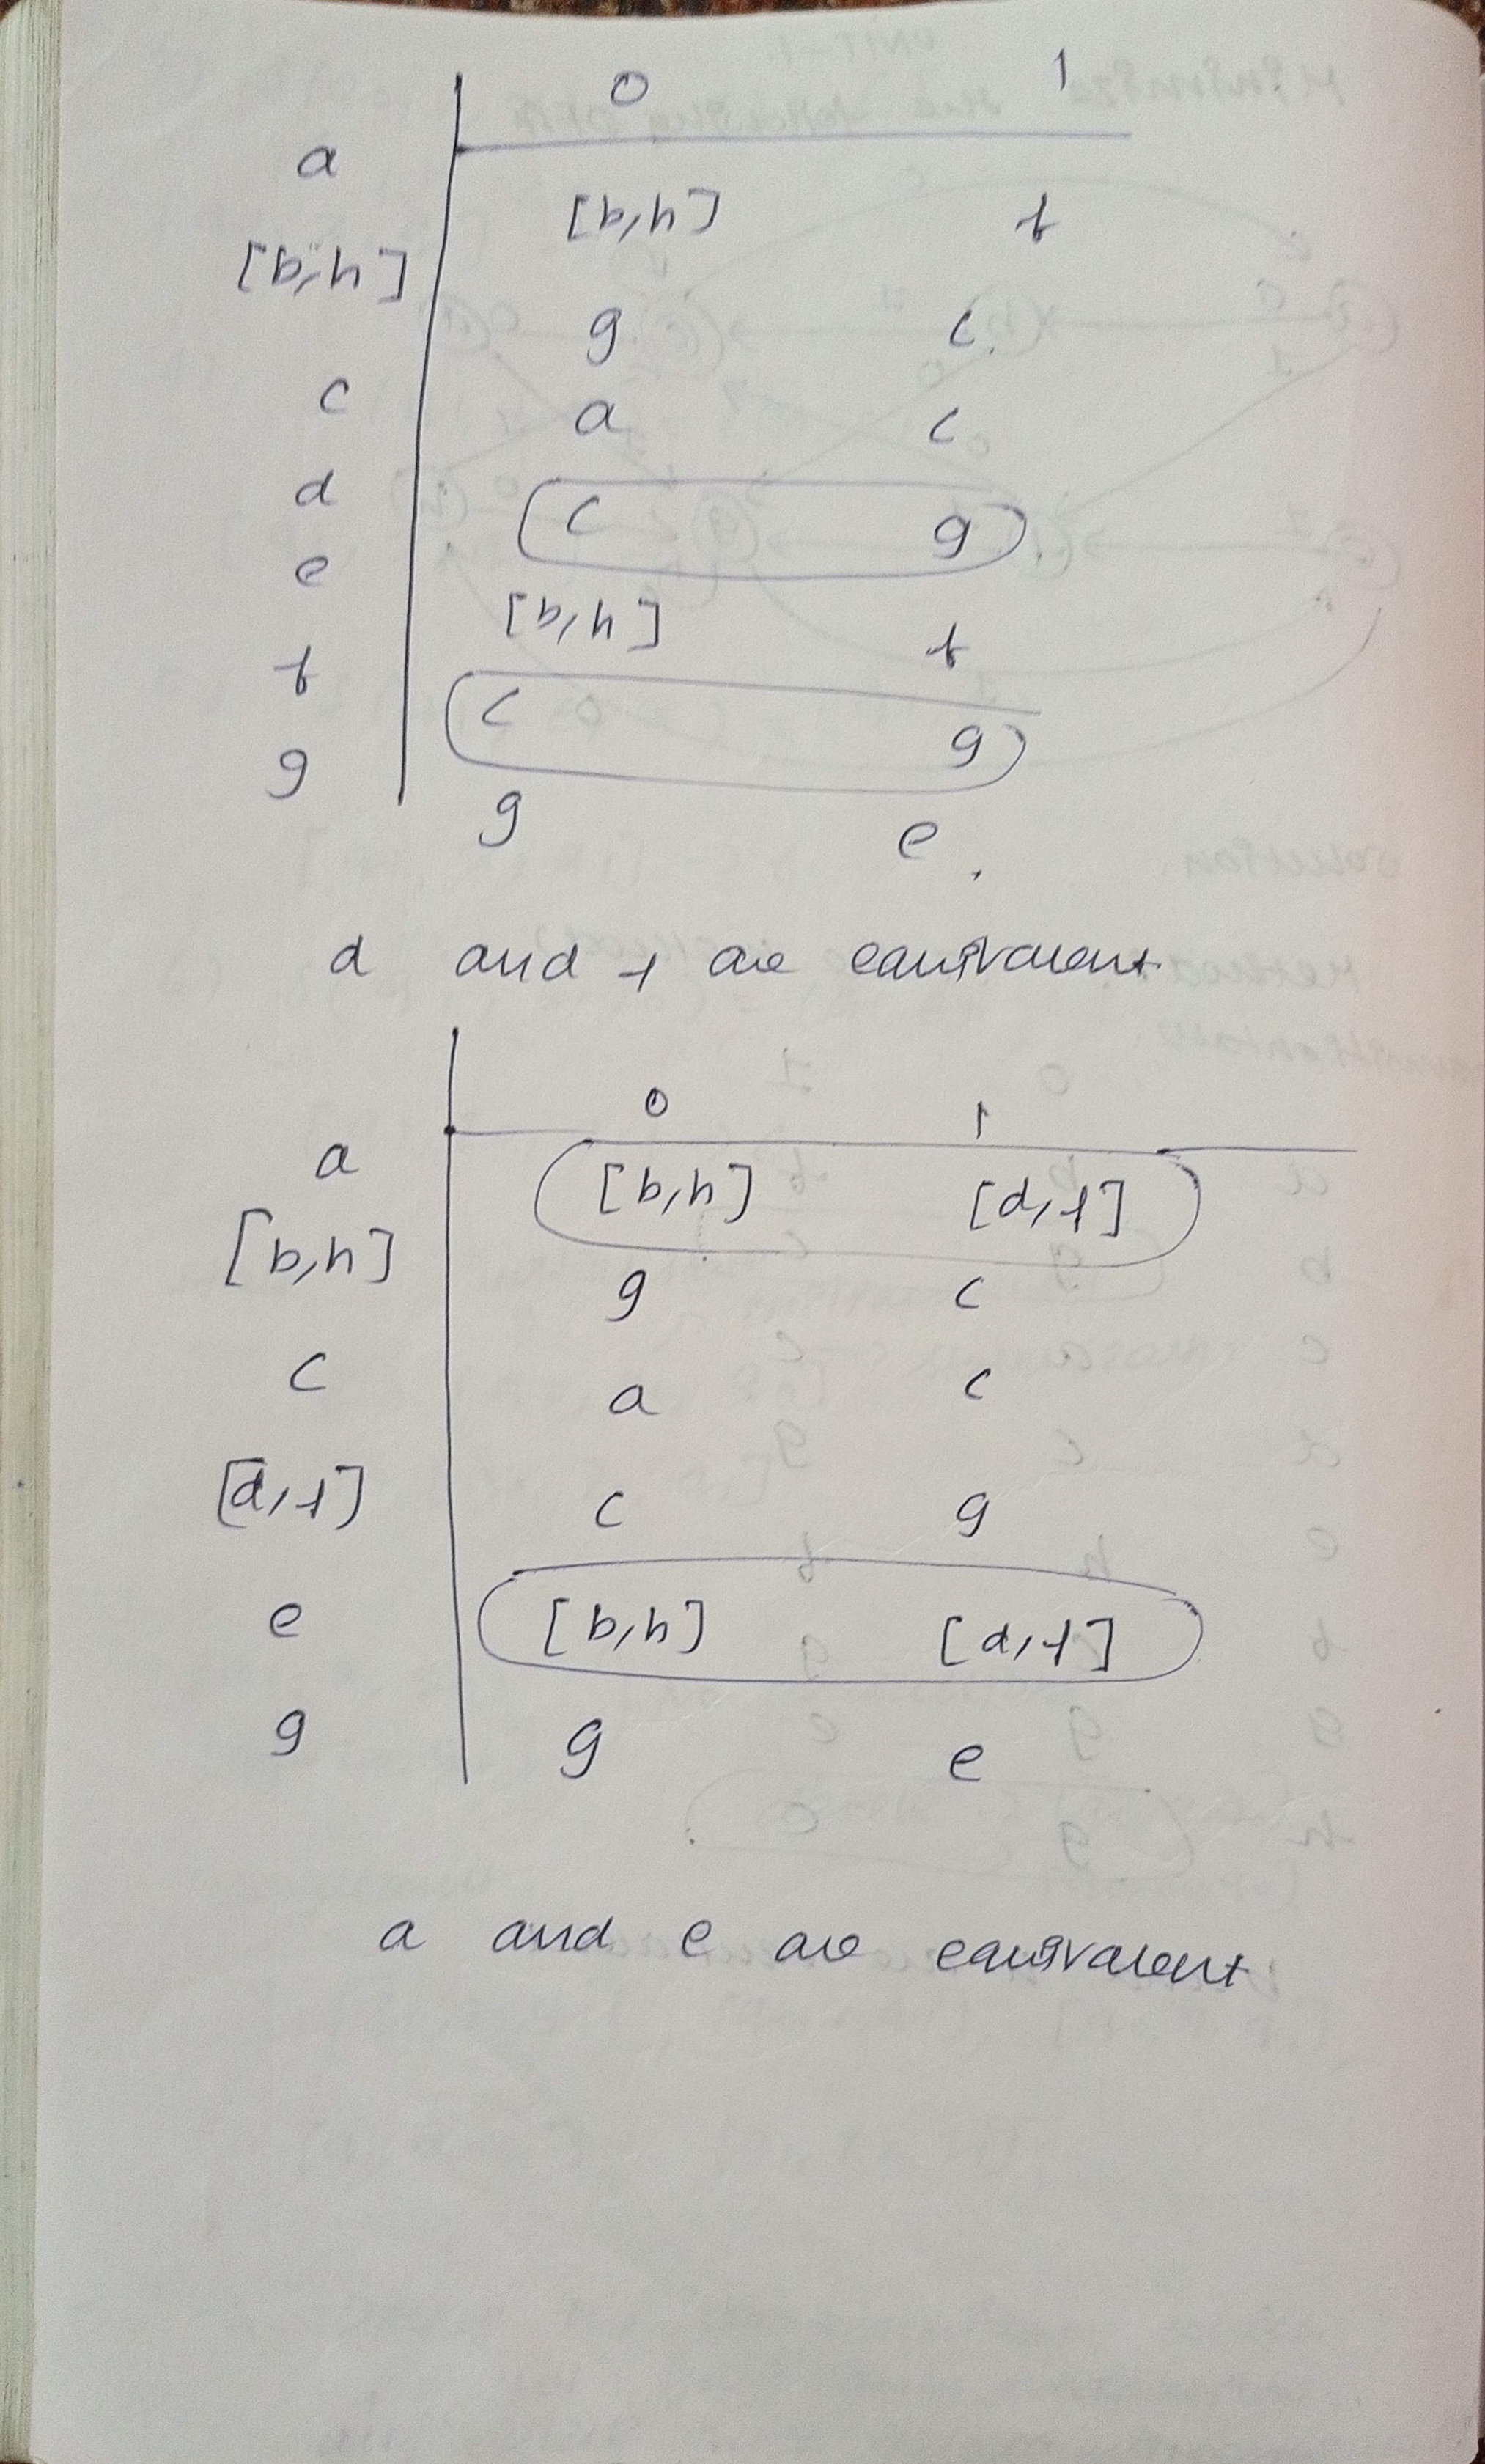 0 1
a [b,h] f
[b,h] g c
c a c
d c g
e [b,h] f
f c g
g g e
d and f are equivalent.
0 1
a [b,h] [d,f]
[b,h] g c
c a c
[d,f] c g
e [b,h] [d,f]
g g e
a and e are equivalent